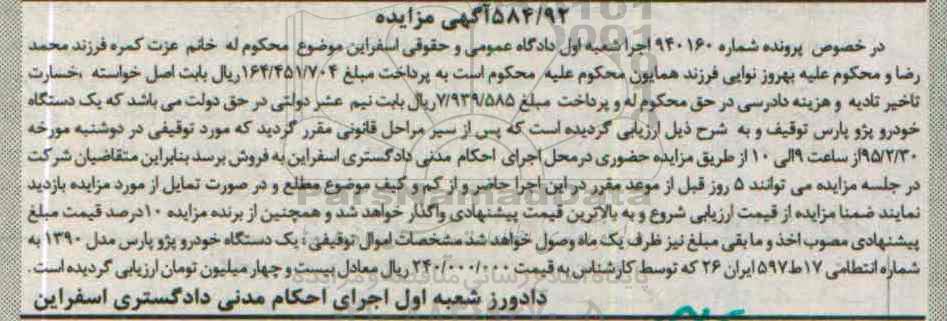 ۵۸۴/۹۲آگهی مزایده
در خصوص پرونده شماره ۹۴۰۱۶۰ اجرا شعبه اول دادگاه عمومی و حقوقی اسفراین موضوع محکوم له خانم عزت کمره فرزند محمد
رضا و محکوم علیه بهروز نوایی فرزند همایون محکوم علیه محکوم است به پرداخت مبلغ ۱۶۴/۴۵۱/۷۰۴ریال بابت اصل خواسته ،خسارت
تاخیر تادیه و هزینه دادرسی در حق محکوم له و پرداخت مبلغ ۷/۹۳۹/۵۸۵ریال بابت نیم عشر دولتی در حق دولت می باشد که یک دستگاه
خودرو پژو پارس توقیف و به شرح ذیل ارزیابی گردیده است که پس از سیر مراحل قانونی مقرر گردید که مورد توقیفی در دوشنبه مورخه
۹۵/۲/۳۰از ساعت ۹الی ۱۰ از طریق مزایده حضوری درمحل اجرای احکام مدنی دادگستری اسفراین به فروش برسد بنابراین متقاضیان شرکت
در جلسه مزایده می توانند ۵ روز قبل از موعد مقرر در این اجرا حاضر و از کم و کیف موضوع مطلع و در صورت تمایل از مورد مزایده بازدید
نمایند ضمنا مزایده از قیمت ارزیابی شروع و به بالاترین قیمت پیشنهادی واگذار خواهد شد و همچنین از برنده مزایده ۱۰درصد قیمت مبلغ
پیشنهادی مصوب اخذ و ما بقی مبلغ نیز ظرف یک ماه وصول خواهد شد مشخصات اموال توقیفی : یک دستگاه خودرو پژو پارس مدل ۱۳۹۰ به
شماره انتظامی ۱۷ط۵۹۷ ایران ۲۶ که توسط کارشناس به قیمت ۲۴۰/۰۰۰/۰۰۰ ریال معادل بیست و چهار میلیون تومان ارزیابی گردیده است .
دادورز شعبه اول اجرای احکام مدنی دادگستری اسفراین
ParsNamadData